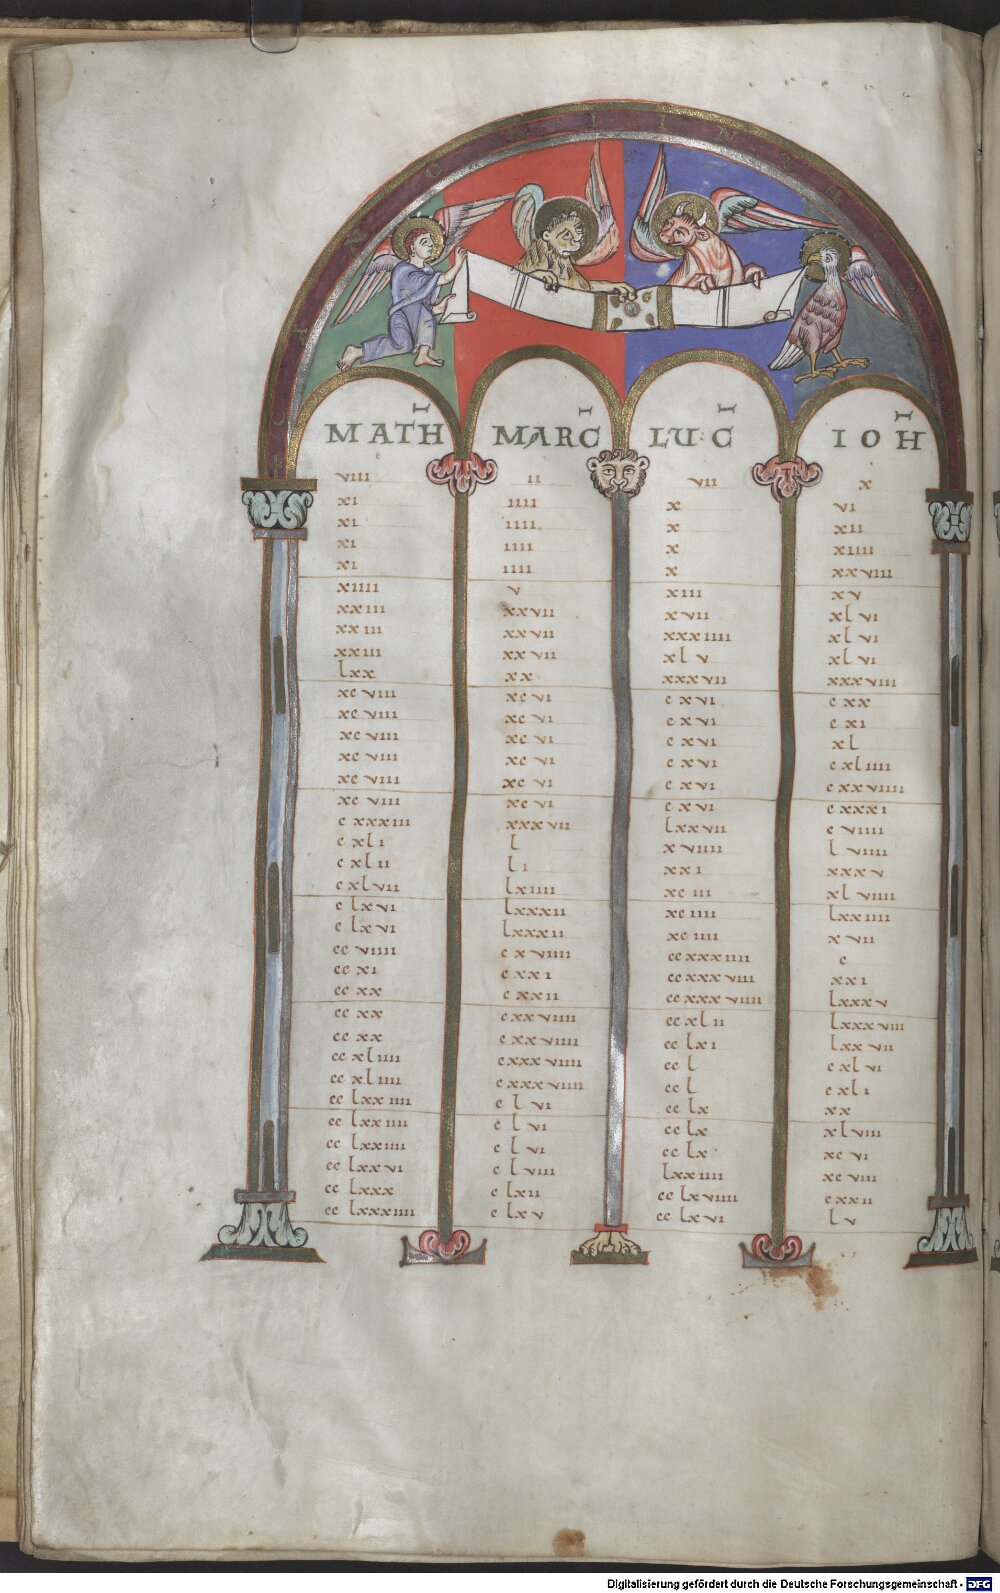 MATH MARC LUC IOH
viiii ii vii x
xi iiii x vi
xi iiii x xii
xi iiii x xiiii
xi iiii x xxviii
xiiii v xiii xv
xxiii xxvii xvii xlvi
xxiii xxvii xxxiiii xlvi
xxiii xxvii xlv xlvi
lxx xx xxxvii xxxviii
xcviii xcvi cxvi cxx
xcviii xcvi cxvi cxi
xcviii xcvi cxvi xl
xcviii xcvi cxvi cxliiii
xcviii xcvi cxvi cxxviiii
xcviii xcvi cxvi cxxxi
cxxxiii xxxvii lxxvii cviiii
cxli l xviiii lviiii
cxlii li xxi xxxv
cxlvii lxiiii xciii xlviiii
clxvi lxxxii xciiii lxxiiii
clxvi lxxxii xciiii xvii
ccviiii cxviiii ccxxxiiii c
ccxi cxxi ccxxxviii xxi
ccxx cxxii ccxxxviiii lxxxv
ccxx cxxviiii ccxlii lxxxviii
ccxx cxxviiii cclxi lxxvii
ccxliiii cxxxviiii ccl cxlvi
ccxliiii cxxxviiii ccl cxli
cclxxiiii clvi cclx xx
cclxxiiii clvi cclx xlviii
cclxxiiii clvi cclx xcvi
cclxxvi clviii lxxiiii xcviii
cclxxx clxii cclxviiii cxxii
cclxxxiiii clxv cclxvi lv
Digitalisierung gefördert durch die Deutsche Forschungsgemeinschaft - DFG